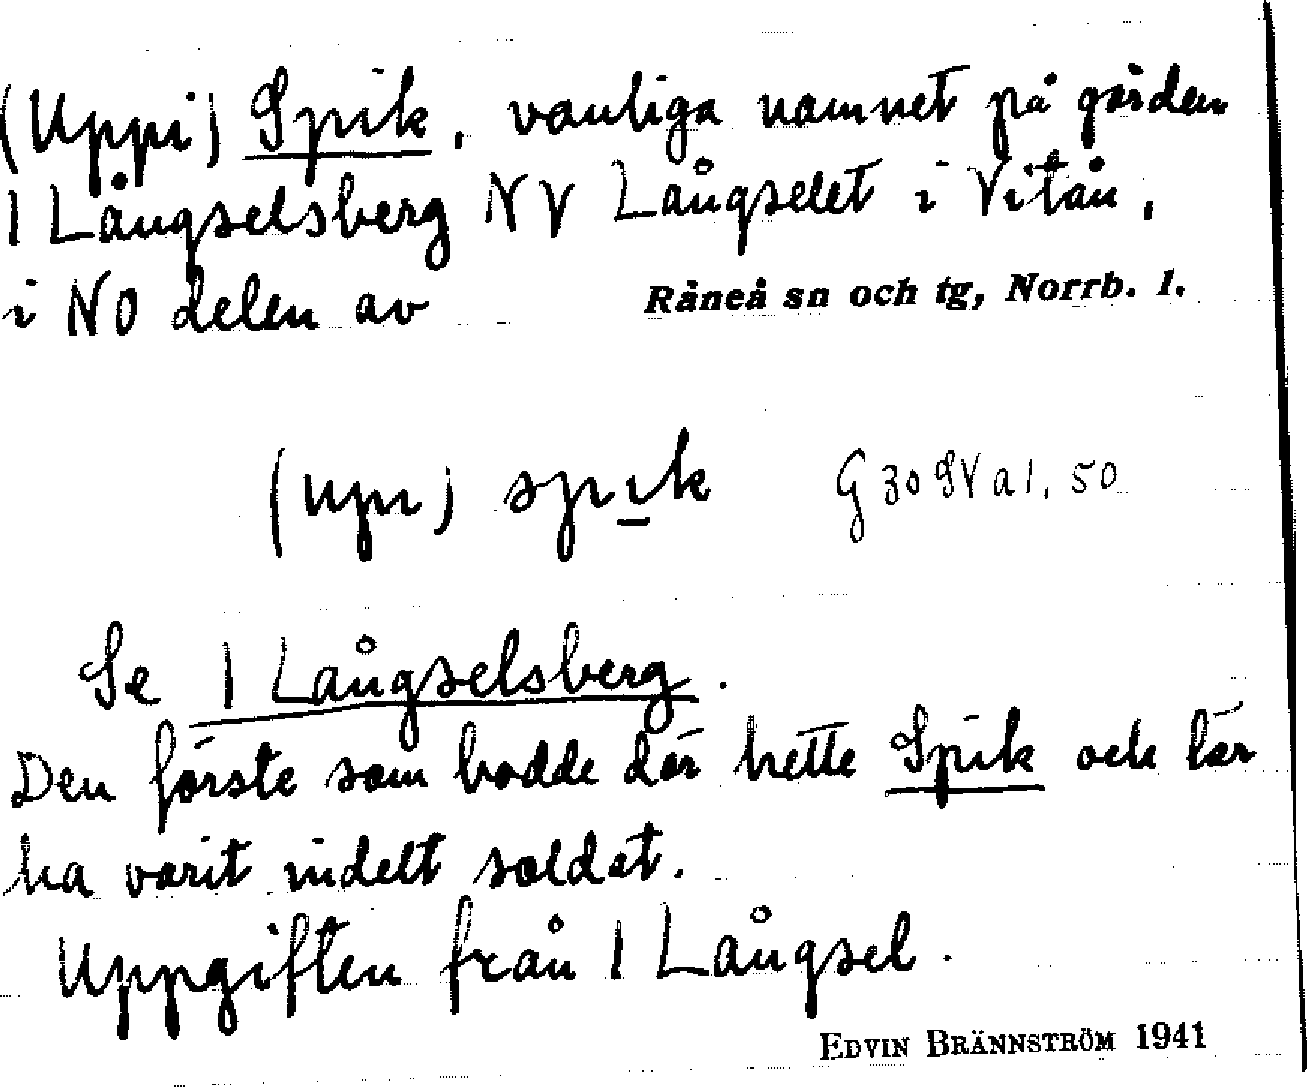 (Uppi) Spik, vanliga namnet på gården
1 Långselsberg NV Långselet i Vitån,
i NO delen av Råneå sn och tg, Norrb. l.
(upi) spik G 30 SV a 1, 50
Se 1 Långselsberg.
Den förste som bodde där hette Spik och lär
ha varit indelt soldat.
Uppgiften från 1 Långsel.
EDVIN BRÄNNSTRÖM 1941